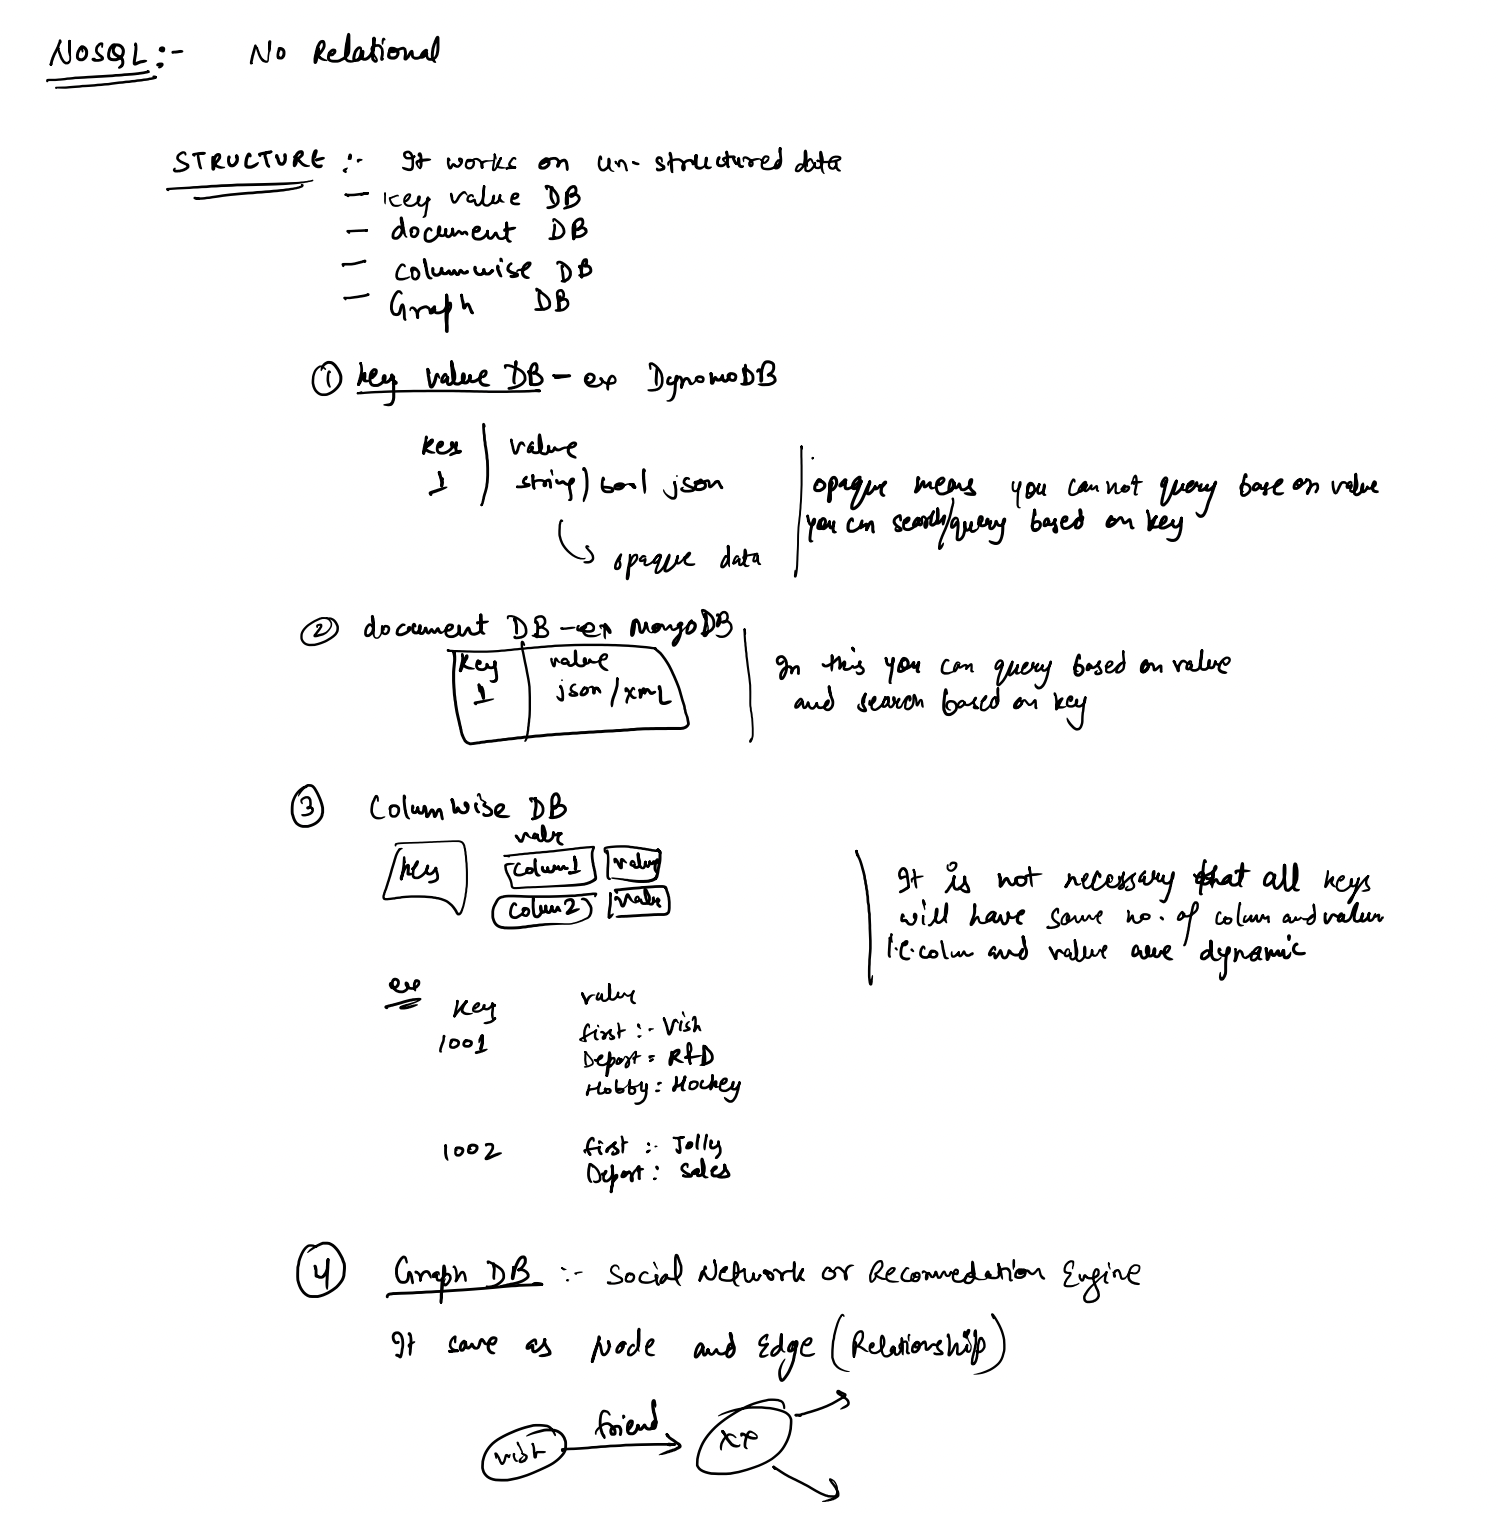 NOSQL:- No Relational
STRUCTURE :- It works on un-structured data
- key value DB
- document DB
- columwise DB
- Graph DB
① key value DB - ex DynomoDB
key | value
1 | string/bool json
opaque data
opaque means you can not query base on value
you can search/query based on key
② document DB - ex MongoDB
Key | value
1 | json/xmL
In this you can query based on value
and search based on key
③ Columwise DB
value
key column1 value
colum2 value
It is not necessary that all keys
will have same no. of colum and value
i.e. colum and value are dynamic
ex
Key value
1001 first :- Vish
Depart = R&D
Hobby = Hockey
1002 first :- Jolly
Depart : Sales
④ Graph DB :- Social Network or Recommedation Engine
It save as Node and Edge (Relationship)
vish friend xp